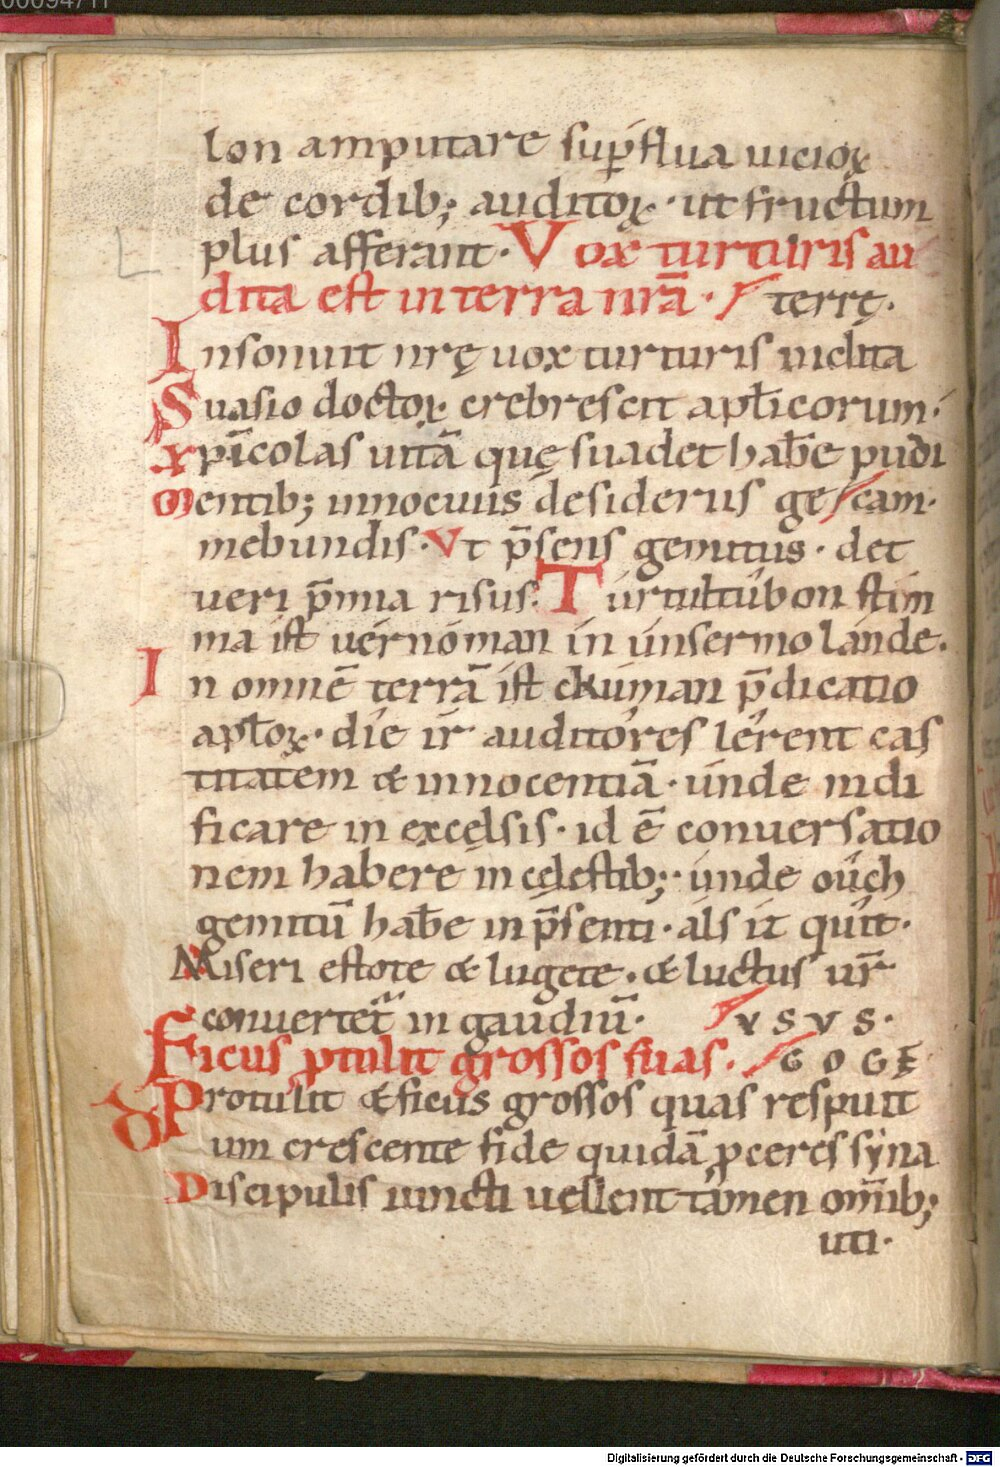 00094711
lon amputare suꝑflua uicioꝝ
de cordib; auditoꝝ · ut fructum
plus afferant · Vox turturis au
dita est in terra nr̄a · terrę ·
Insonuit nrę uox turturis inclita
Suasio doctoꝝ crebrescit apłicorum ·
xp̄icolas uitā quę suadet hab̄e pudi
Mentib; innocuus desideriis ge cam ·
mebundis · Vt p̄sens gemitus · det
ueri p̄mia risus · Turtultúbon stim
ma ist uérnóman in únsermo lánde ·
In omnē terrā ist chúman p̄dicatio
apłoꝝ · díe ír auditóres lérent cas
titatem & innocentiā · únde nidi
ficare in excelsis · id ē conuersatio
nem habere in cęlestib; · únde oúch
gemitū hab̄e in p̄senti · áls iz quít ·
Miseri estote & lugete · & luctus ur̄
conuertet̄ in gaudiū · v s v s ·
Ficus ꝓtulit grossos suas · G O G E
Protulit & ficus grossos quas respuit
Dum crescente fide quidā ꝓceres syna
Discipulis iuncti uellent tamen om̄ib;
uti ·
Digitalisierung gefördert durch die Deutsche Forschungsgemeinschaft - DFG